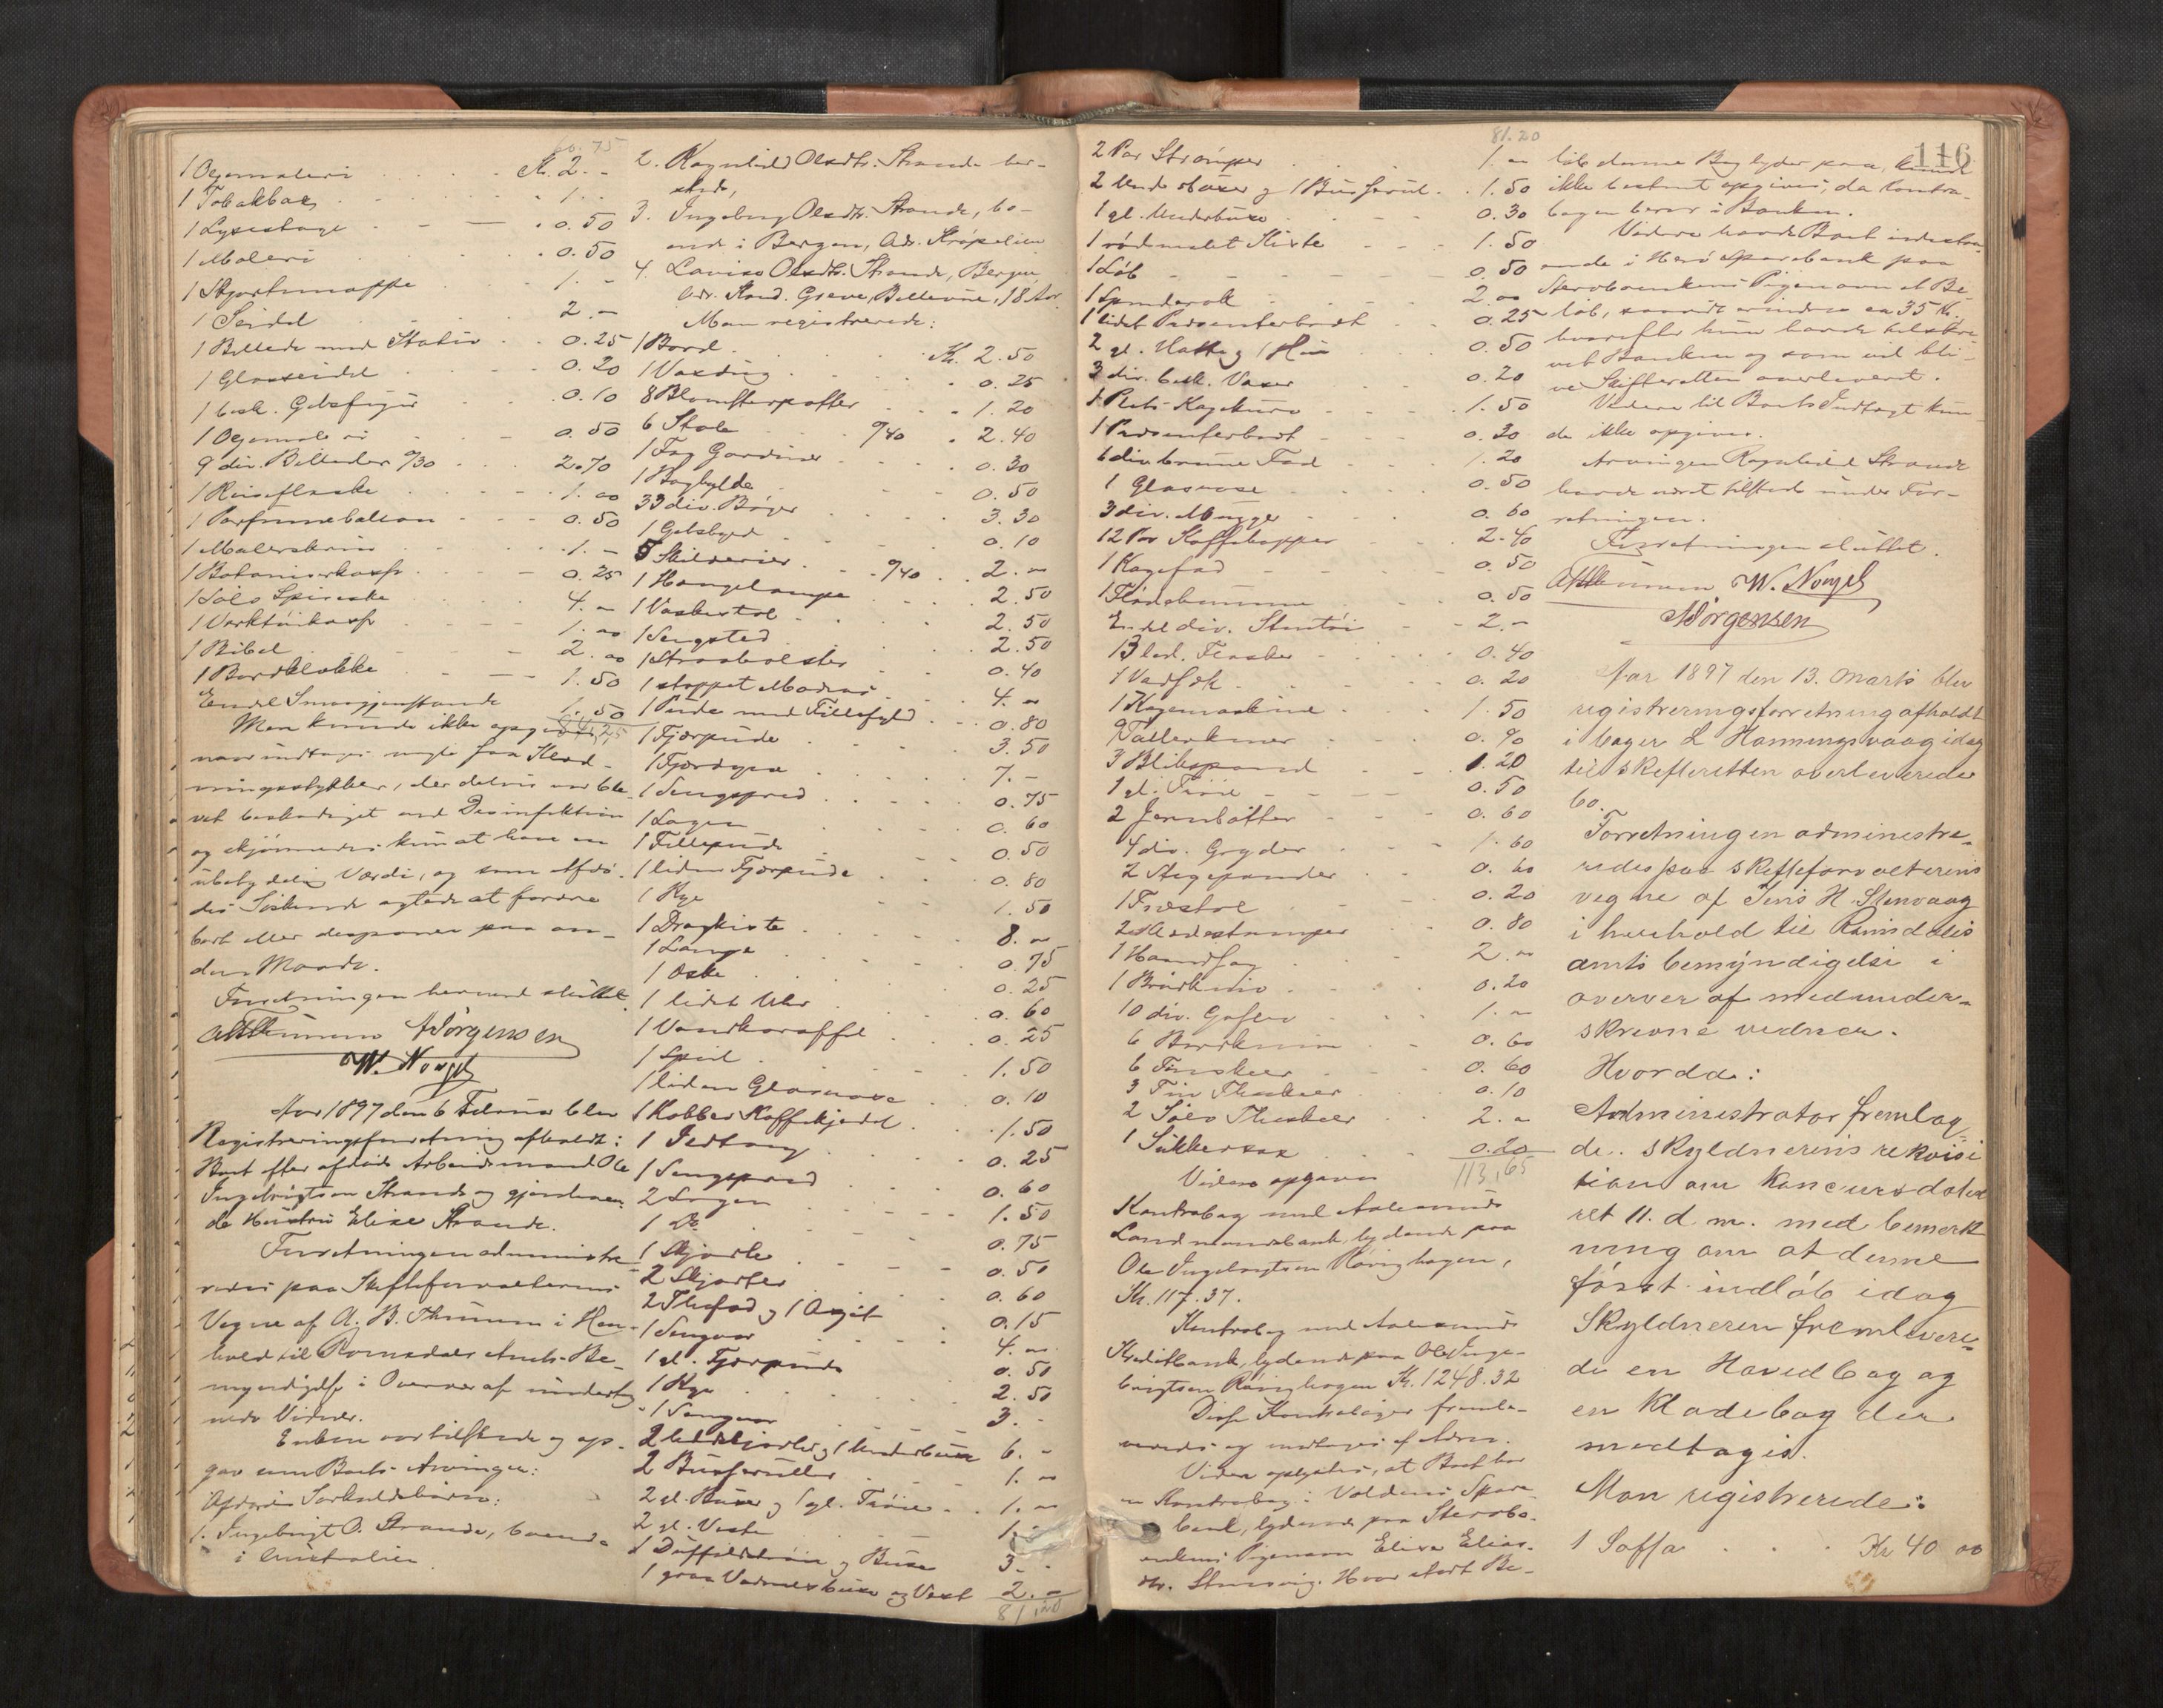 60.75
1 Oljemaleri . . . . . Kr. 2.-
1 Tobakkas . . . . 1. -
1 Lysestage . - — . 0.50
1 Maleri . . . . 0.50
1 Skjortemappe . . . 1. -
1 Seidel . . . 2. -
1 Billede med Stativ . . 0.25
1 Glasseidel . . . 0.20
1 besk. Gibsfigur . . . 0.10
1 Oljemaleri . . - 0.50
9 div. Billeder 0/30 . . . 2.70
1 Reiseflaske . . . . 1. 00
1 Parfumeballon . . . 0.50
1 Malerskrin . . . 1. -
1 Botaniserkasse . . - 0.25
1 Sølv Spiseske . . . 4. -
1 Verktøikasse . . - 1. 00
1 Bibel . . - 2. 00
1 Bordklokke . . — - 1.50
Endel Smaagjenstande 1.50
94,25
Man kunde ikke opgive
naar undtages nogle faa Klæd-
ningsstykker, der delvis var ble-
vet beskadiget ved Desinfektion
og skjønnedes kun at have en
ubetydelig Værdi, og som Afdø-
des Søskende agtede at fordre
bort eller disponere paa an-
den Maade.
Forretningen hermed sluttet.
A. Jørgensen
W. Norgel
Aar 1897 den 6 Februar blev
Registreringsforretning afholdt i
Boet efter afdøde Arbeidsmand Ole
Ingebrigtsen Strande og gjenleven-
de Hustru Elise Strande.
Forretningen administre-
redes paa Skifteforvalterens
Vegne af A. B. Thunem i Hen-
hold til Romsdals Amts Be-
myndigelse i Overvær af underteg-
nede Vidner.
Enken var tilstede og op-
gav som Boets Arvinger:
Afdødes Særkuldsbørn:
1. Ingebrigt O. Strande, boende
i Australien
2. Ragnhild Olsdtr. Strande her-
steds,
3. Ingeborg Olsdtr. Strande, bo-
ende i Bergen, Adr.
4. Lovise Olsdtr. Strande, Bergen
Adr. Kond. Greve, Bellevue, 18 Aar
Man registrerede:
1 Bord . . . . Kr. 2.50
1 Voxdug . . . . 0.25
8 Blomsterpotter . . . 1.20
6 Stole . . 0/40 . 2.40
1 Fag Gardiner . . . . 0.30
1 Boghylde . . . 0.50
33 div. Bøger . . . . 3.30
1 Gibsbyst . . . 0.10
5 Skilderier . . - 0/40 . . 2. 00
1 Hængelampe . . . . 2.50
1 Vaskestol - . . . 2.50
1 Sengsted . . . . 2.50
1 Straabolster . . . 0.40
1 stoppet Madras . . . 4. 00
1 Pude med Fillefyld . - . 0.80
1 Fjærpude . . . 3.50
1 Fjærdyne . . . . 7. -
1 Sengspred . . . . . 0.75
1 Lagen . . . . 0.60
1 Fillepude . . . 0.50
1 liden Fjærpude . . . 0.80
1 Rye . . . . 1.50
1 Dragkiste . . . . 8. 00
1 Lampe . . . . 0.75
1 Æske . . . . . 0.25
1 lidet Uhr . . . . 0.60
1 Vandkaraffel . . . 0.25
1 Speil . . . . 1.50
1 liden Glasvase . . 0.10
1 Kobber Kaffekjedel . . . 1.50
1 Ildtang . . . . 0.25
1 Sengspred . . . 0.60
2 Lagen . . . - - 1.50
1 Do . . . - 0.75
1 Skjorte . . - - 0.50
2 Skjorter . . . 0.60
2 Thefad og 1 Asjet . 0.15
1 Sengvær . . . . 4. 00
1 gl. Fjærpude . . . 0.50
1 Rye . . . . 2.50
1 Sengvær . . . 3. -
2 Uldskjorter og 1 Underbuxe 6. -
2 Busseruller . . . 1. 00
2 gl. Buxer og 1 gl. Trøie . . 1. 00
2 gl. Veste . . . . 1. -
1 Duffelstrøie og Buxe . 3. -
1 graa Vadmelsbuxe og Vest 2. -
81,20
81.20
116
2 Par Strømper . . . 1. 00
2 Underbuxer og 1 Busserul . . 1.50
1 gl. Underbuxe . . - - 0.30
1 rødmalet Kiste - - - 1.50
1 Løb - - - - - - 0.50
1 Spinderok . . . . 2. 00
1 lidet Præsenterbræt . . 0.25
2 gl. Hatte og 1 Hue . . 0.50
3 div. besk. Vaser . . . 0.20
1 Rets Kagekurv - - - - 1.50
1 Præsenterbræt - - - - 0.30
6 div. brune Fad . . . 1.20
1 Glasvase . . . . 0.50
3 div. Mugger - . - . 0.60
12 Par Kaffekopper . . . 2.40
1 Kagefad - - - - - 0.50
1 Flødekumme . . . 0.50
Endel div. Stentøi - - 2. -
13 led. Flasker - - - . 0.40
1 Vadsæk . . - . . 0.20
1 Kagemaskine . . . 1.50
9 Tallerkener . . - 0.90
3 Blikspand . . - . 1.20
1 gl. Trøie - - - - 0.50
2 Jernbøtter . - - 0.60
4 div. Gryder . . - 1.60
2 Stegepander . . . 0.60
1 Træstol . . . - 0.20
2 Mælkestamper . . 0.80
1 Haandsag . . . . 2. 00
1 Brødkniv . . . . 0.20
10 div. Gafler . . . 1. -
6 Bordknive . . . 0.60
6 Tinskeer . . - 0.60
3 Tin Theskeer . . . 0.10
2 Sølv Theskeer . . . 2. -
1 Sukkersax . . . 0.20
113,65
Videre opgaves
Kontrabog med Aalesunds
Landmandsbank, lydende paa
Ole Ingebrigtsen Røvighagen,
Kr. 117.37.
Kontrabog med Aalesunds
Kreditbank, lydende paa Ole Inge-
brigtsen Røvighagen Kr. 1248.32
Disse Kontrabøger fremle-
veredes og modtages af Adm.
Videre oplystes, at Boet har
en Kontrabog i Voldens Spare-
bank, lydende paa Stervbo-
enkens Pigenavn Elise Elias-
dtr. Hvor stort Be-
løb denne Bog lyder paa, kunde
ikke bestemt opgives, da Kontra-
bogen beror i Banken.
Videre havde Boet indestaa-
ende i Herø Sparebank paa
Stervboenkens Pigenavn et Be-
løb, saavidt erindres ca 35 Kr.
hvorefter hun havde tilskre-
vet Banken og som vil bli-
ve Skifteretten overleveret.
Videre til Boets Indtægt kun-
de ikke opgives.
Arvingen Ragnhild Strande
havde været tilstede under For-
retningen.
Forretningen sluttet.
W. Norgel
A Jørgensen
Aar 1897 den 13. Marts blev
registreringsforretning afholdt
i boger L Hanningsvaag idag
til skifteretten overleverede
bo.
Forretningen administre-
redes paa skifteforvalterens
vegne af Jens H. Stenvaag
i henhold til Romsdals
amts bemyndigelse i
overver af medunder-
skrevne vidner.
Hvorda:
Administrator fremlag-
de skyldnerens rekvisi
tion om koncurs dateret
ret 11. d. m. med bemerk
ning om at denne
først indløb idag
Skyldneren fremlevere-
de en Hovedbog og
en Kladebog der
modtoges.
Man registrerede:
1 Soffa . . . . Kr 40 00